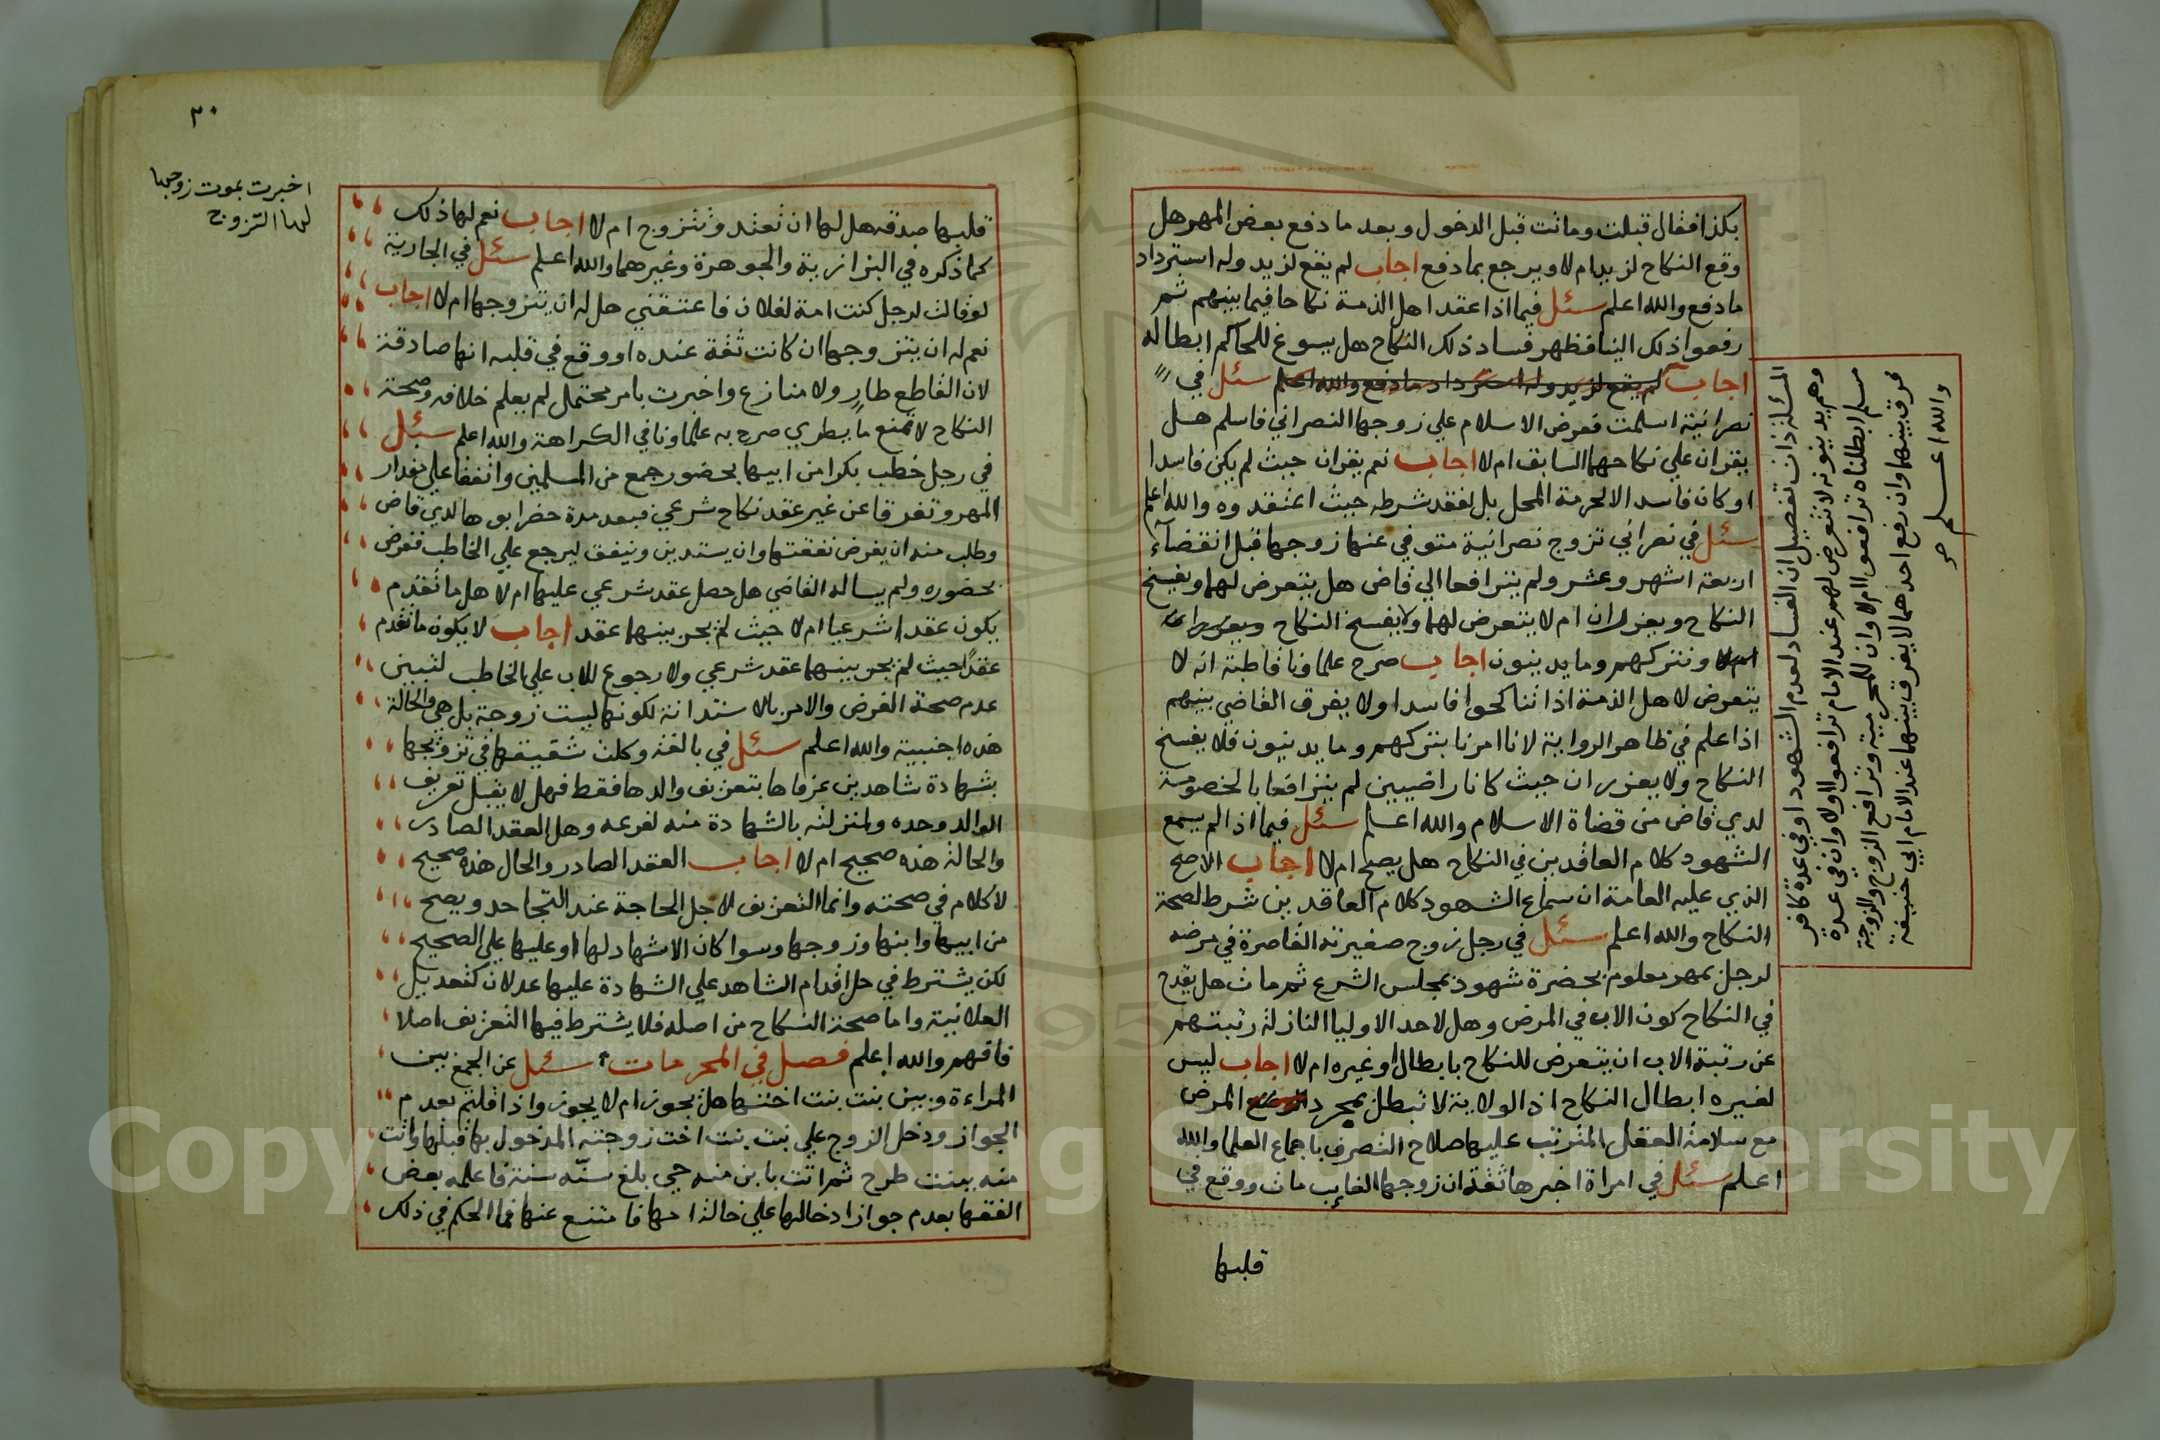 بكذا فقال قبلت وماتت قبل الدخول وبعد ما دفع بعض المهر هل
وقع النكاح لزيد ام لا ويرجع بما دفع اجاب لم يقع لزيد وله استرداد
ما دفع والله اعلم سئل فيما اذا عقد اهل الذمة نكاحا فيما بينهم ثم
رفعوا ذلك الينا فظهر فساد ذلك النكاح هل يسوغ للحاكم ابطاله
اجاب لم يقع لزيد وله استرداد ما دفع والله اعلم سئل في
نصرانية اسلمت فعرض الاسلام علي زوجها النصراني فاسلم هل
يقران علي نكاحهما السابق ام لا اجاب نعم يقران حيث لم يكن فاسدا
او كان فاسدا لا لحرمة المحل بل لفقد شرطه حيث اعتقدوه والله اعلم
سئل في نصراني تزوج نصرانية متوفي عنها زوجها قبل انقضآء
اربعة اشهر وعشر ولم يترافعا الي قاض هل يتعرض لهما ويفسخ
النكاح ويعزران ام لا يتعرض لهما ولا يفسخ النكاح
ونتركهم وما يدينون اجاب صرح علماونا قاطبة انه لا
يتعرض لاهل الذمة اذا تناكحوا فاسدا ولا يفرق القاضي بينهم
اذا علم في ظاهر الرواية لانا امرنا بتركهم وما يدينون فلا يفسخ
النكاح ولا يعزران حيث كانا راضيين لم يترافعا بالخصومة
لدي قاض من قضاة الاسلام والله اعلم سئل فيما اذا لم يسمع
الشهود كلام العاقدين في النكاح هل يصح ام لا اجاب الاصح
الذي عليه العامة ان سماع الشهود كلام العاقدين شرط لصحة
النكاح والله اعلم سئل في رجل زوج صغيرته القاصرة في مرضه
لرجل بمهر معلوم بحضرة شهود بمجلس الشرع ثم مات هل يقدح
في النكاح كون الاب في المرض وهل لاحد الاوليا النازلة رتبتهم
عن رتبة الاب ان يتعرض للنكاح بابطال او غيره ام لا اجاب ليس
لغيره ابطال النكاح اذ الولاية لا تبطل بمجرد المرض
مع سلامة العقل المترتب عليها صلاح التصرف باجماع العلما والله
اعلم سئل في امراة اخبرها ثقة ان زوجها الغايب مات ووقع في
قلبها
المسئلة ذات تفصيل ان الفساد لعدم الشهود او في عدة كافر
وهم يدينونه لا نتعرض لهم عند الامام ترافعوا اولا وان في عدة
مسلم ابطلناه ترافعوا ام لا وان للمحرمية وترافع الزوج والزوجة
فرق بينهما وان رفع احدهما لا يفرق بينهما عند الامام ابي حنيفة
والله اعلم
٣٠
اخبرت بموت زوجها
لها التزوج
قلبها صدقه هل لها ان تعتد وتتزوج ام لا اجاب نعم لها ذلك
كما ذكره في البزازية والجوهرة وغيرهما والله اعلم سئل في الجارية
لو قالت لرجل كنت امة لفلان فاعتقني هل له ان يتزوجها ام لا اجاب
نعم له ان يتزوجها ان كانت ثقة عنده او وقع في قلبه انها صادقة
لان القاطع طار ولا منازع واخبرت بامر محتمل لم يعلم خلافه وصحة
النكاح لا تمنع ما يطري صرح به علماونا في الكراهة والله اعلم سئل
في رجل خطب بكرا من ابيها بحضور جمع من المسلمين واتفقا علي مقدار
المهر وتفرقا عن غير عقد نكاح شرعي فبعد مدة حضر ابوها لدي قاض
وطلب منه ان يفرض نفقتها وان يستدين وينفق ليرجع علي الخاطب ففرض
بحضوره ولم يساله القاضي هل حصل عقد شرعي عليها ام لا هل ما تقدم
يكون عقدا شرعيا ام لا حيث لم يجر بينهما عقد اجاب لا يكون ما تقدم
عقدا حيث لم يجر بينهما عقد شرعي ولا رجوع للاب علي الخاطب لتبين
عدم صحة الفرض والامر بالاستدانة لكونها ليست زوجة بل هي والحالة
هذه اجنبية والله اعلم سئل في بالغة وكلت شقيقها في تزويجها
بشهادة شاهدين عرفاها بتعريف والدها فقط فهل لا يقبل تعريف
الوالد وحده ولمنزلته بالشهادة منه لفرعه وهل العقد الصادر
والحالة هذه صحيح ام لا اجاب العقد الصادر والحال هذه صحيح
لا كلام في صحته وانما التعريف لاجل الحاجة عند التجاحد ويصح
من ابيها وابنها وزوجها وسوا كان الاشهاد لها او عليها علي الصحيح
لكن يشترط في حل اقدام الشاهد علي الشهادة عليها عدلان كتعديل
العلانية واما صحة النكاح من اصله فلا يشترط فيها التعريف اصلا
فافهم والله اعلم فصل في المحرمات سئل عن الجمع بين
المراءة وبين بنت بنت اختها هل يجوز ام لا يجوز واذا قلتم بعدم
الجواز ودخل الزوج علي بنت بنت اخت زوجته المدخول بها قبلها واتت
منه ببنت طرح ثم اتت بابن منه حي بلغ سنه سنة فاعلمه بعض
الفقها بعدم جواز ادخالها علي خالة امها فامتنع عنها فما الحكم في ذلك